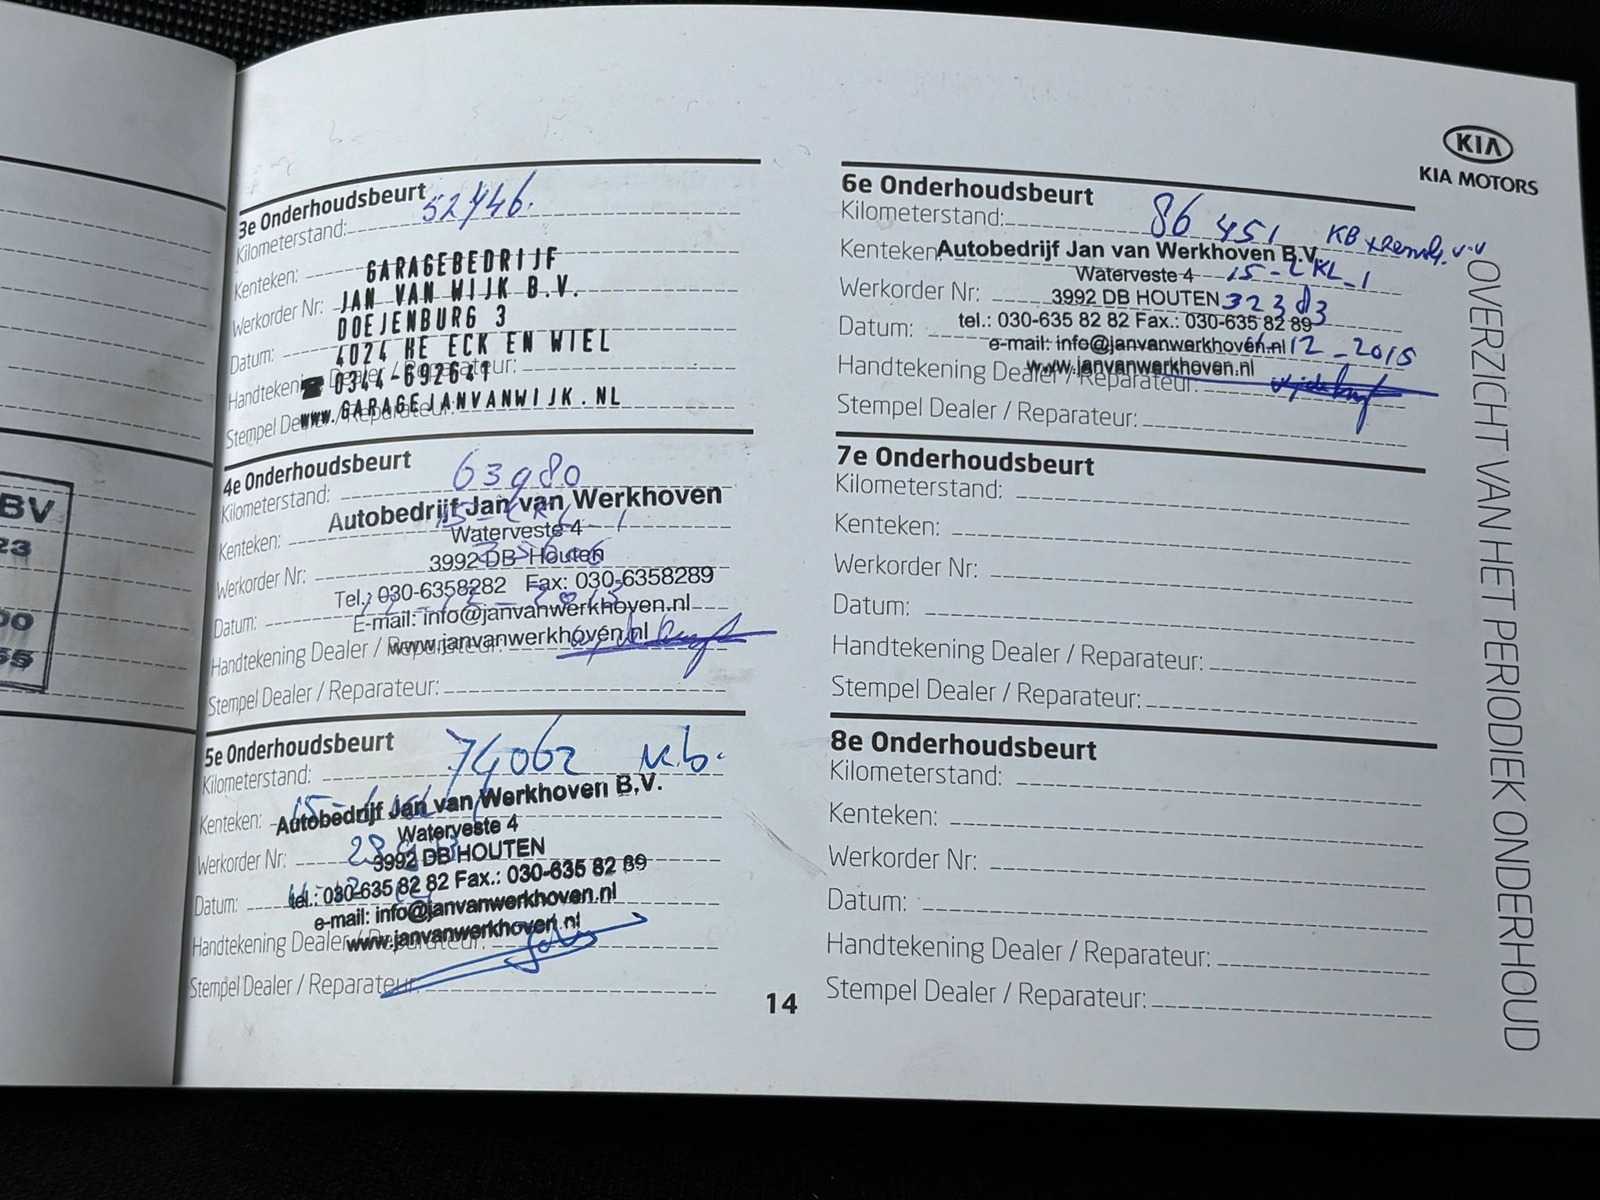 BV
23
00
55
3e Onderhoudsbeurt
Kilometerstand: 52746.
Kenteken: GARAGEBEDRIJF
JAN VAN WIJK B.V.
Werkorder Nr:
DOEJENBURG 3
Datum:
4024 HE ECK EN WIEL
Handtekening Dealer / Reparateur:
☎ 0344-692641
Stempel Dealer / Reparateur:
www.GARAGEJANVANWIJK.NL
4e Onderhoudsbeurt
Kilometerstand: 63980
Autobedrijf Jan van Werkhoven
Kenteken:
Waterveste 4
3992 DB Houten
Werkorder Nr:
Tel.: 030-6358282 Fax: 030-6358289
Datum:
E-mail: info@janvanwerkhoven.nl
www.janvanwerkhoven.nl
Handtekening Dealer / Reparateur:
Stempel Dealer / Reparateur:
5e Onderhoudsbeurt
Kilometerstand: 74062 K.b.
Kenteken:
Autobedrijf Jan van Werkhoven B.V.
Waterveste 4
Werkorder Nr:
3992 DB HOUTEN
Datum:
tel.: 030-635 82 82 Fax.: 030-635 82 89
e-mail: info@janvanwerkhoven.nl
www.janvanwerkhoven.nl
Handtekening Dealer / Reparateur:
Stempel Dealer / Reparateur:
14
KIA
KIA MOTORS
6e Onderhoudsbeurt
Kilometerstand: 86451 KB
Kenteken: 15-LKL-1
Autobedrijf Jan van Werkhoven B.V.
Waterveste 4
Werkorder Nr: 32383
3992 DB HOUTEN
Datum: 12-2015
tel.: 030-635 82 82 Fax.: 030-635 82 89
e-mail: info@janvanwerkhoven.nl
www.janvanwerkhoven.nl
Handtekening Dealer / Reparateur:
Stempel Dealer / Reparateur:
7e Onderhoudsbeurt
Kilometerstand:
Kenteken:
Werkorder Nr:
Datum:
Handtekening Dealer / Reparateur:
Stempel Dealer / Reparateur:
8e Onderhoudsbeurt
Kilometerstand:
Kenteken:
Werkorder Nr:
Datum:
Handtekening Dealer / Reparateur:
Stempel Dealer / Reparateur:
OVERZICHT VAN HET PERIODIEK ONDERHOUD